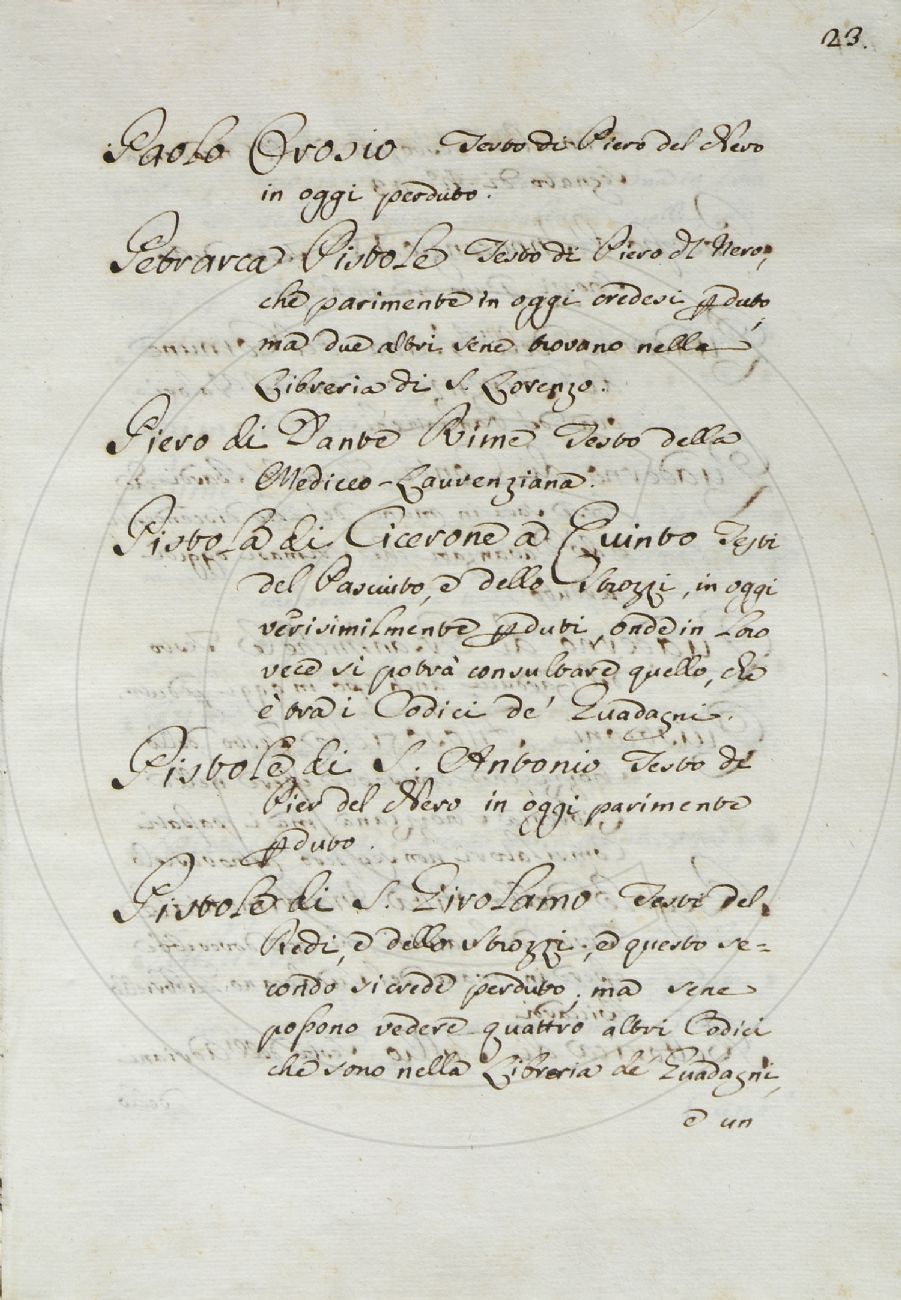 23.
Paolo Orosio Testo di Piero del Nero
in oggi perduto.
Petrarca Pistole Testo di Piero dl Nero,
che parimente in oggi credesi ꝑduto,
ma due altri sene trovano nella
Libreria di S. Lorenzo.
Piero di Dante Rime Testo della
Mediceo-Laurenziana.
Pistola di Cicerone a Quinto Testi
del Pasciuto, e dello Strozzi, in oggi
verisimilmente ꝑduti, onde in loro
vece si potrà consultare quello, che
è tra i Codici de' Guadagni.
Pistole di S. Antonio Testo di
Pier del Nero in oggi parimente
ꝑduto.
Pistole di S. Girolamo Testi del
Redi, e dello Strozzi, e questo se=
condo si crede perduto, ma sene
possono vedere quattro altri Codici
che sono nella Libreria de' Guadagni,
e un